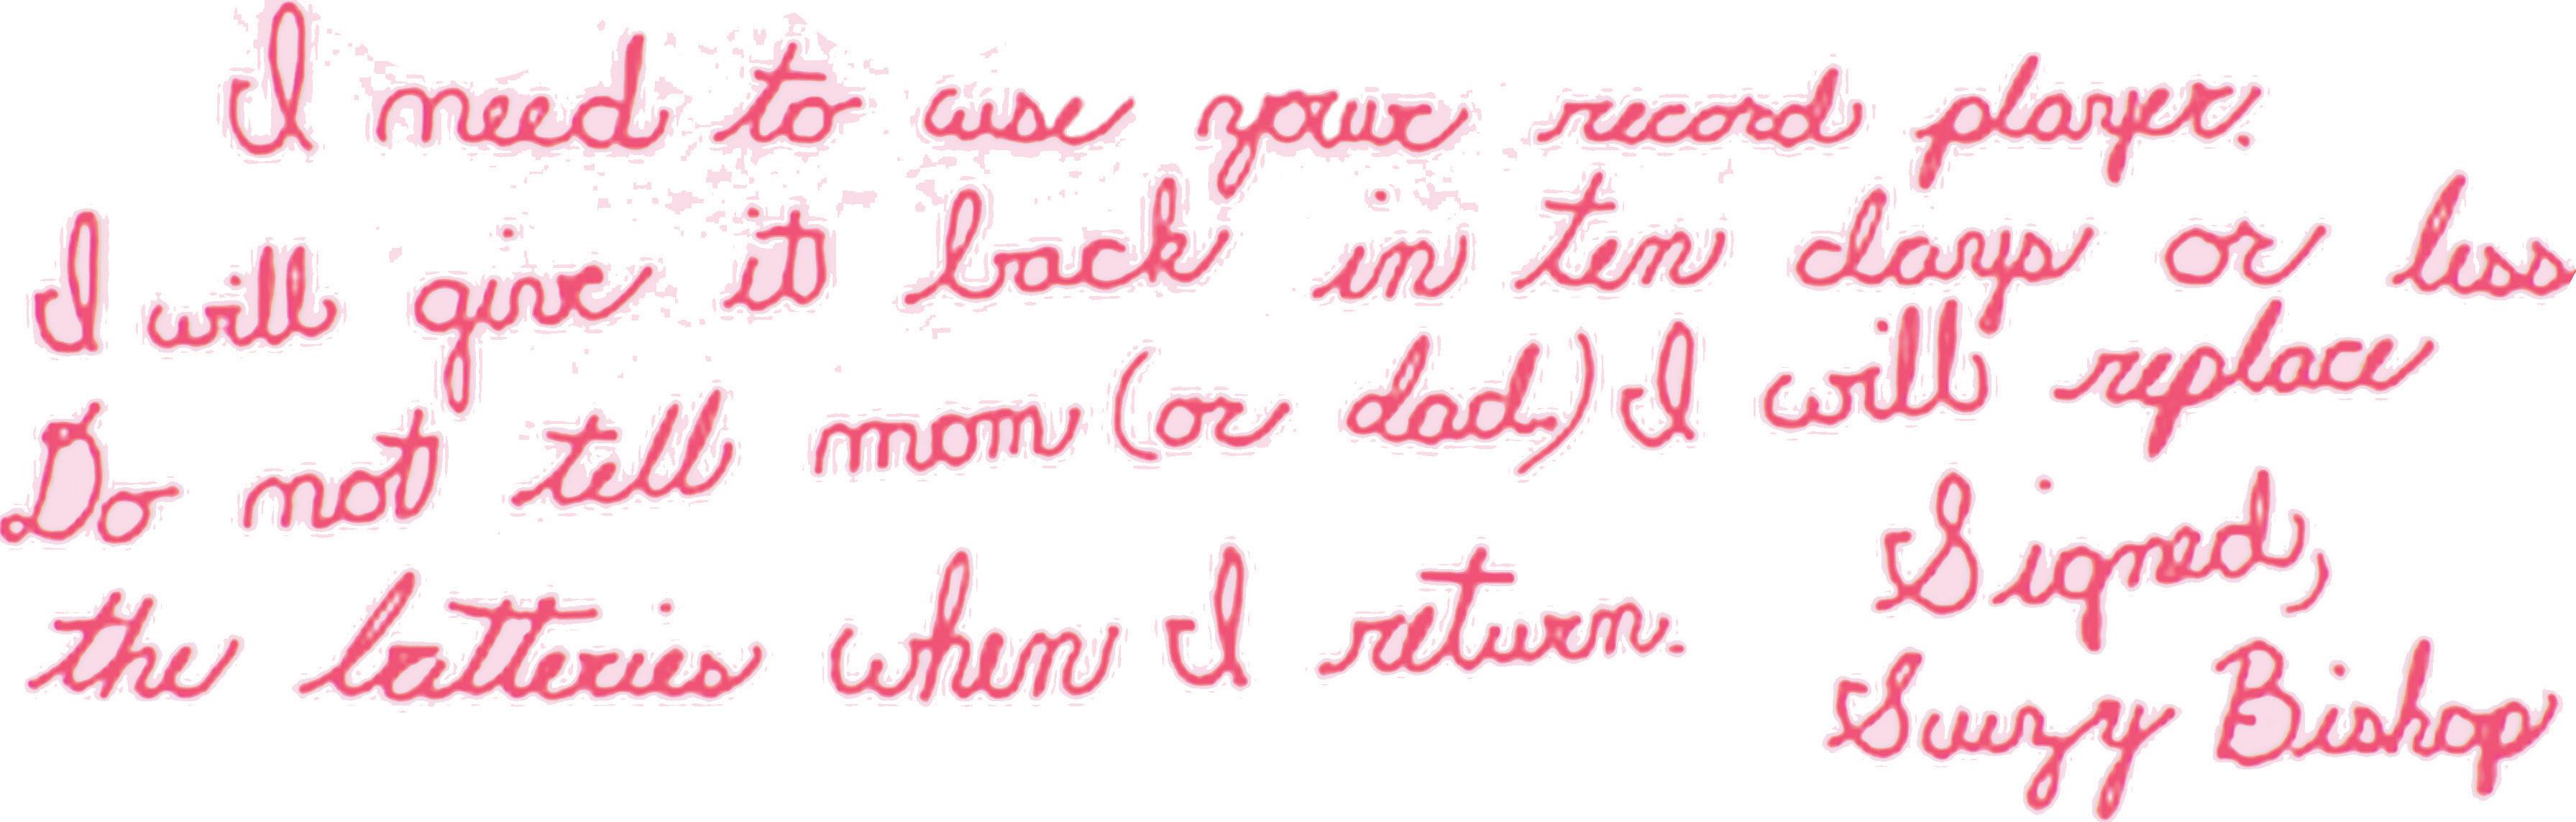 I need to use your record player.
I will give it back in ten days or less
Do not tell mom (or dad) I will replace
the batteries when I return.
Signed,
Suzy Bishop